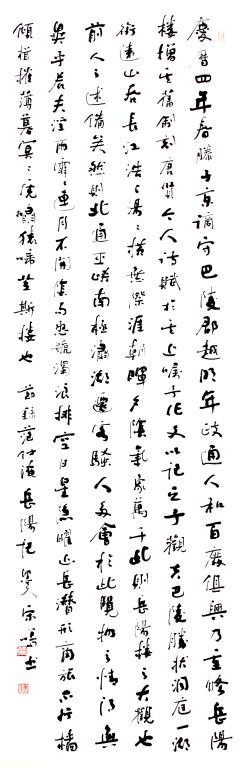 慶曆四年春滕子京謫守巴陵郡越明年政通人和百廢俱興乃重修岳陽
樓增其舊制刻唐賢今人詩賦於其上囑予作文以記之予觀夫巴陵勝狀洞庭一湖
銜遠山吞長江浩々湯々橫無際涯朝暉夕陰氣象萬千此則岳陽樓之大觀也
前人之述備矣然則北通巫峽南極瀟湘遷客騷人多會於此覽物之情得無
異乎若夫淫雨霏々連月不開陰風怒號濁浪排空日星隱曜山岳潛形商旅不行檣
傾楫摧薄暮冥々虎嘯猿啼登斯樓也 前錄范仲淹岳陽記